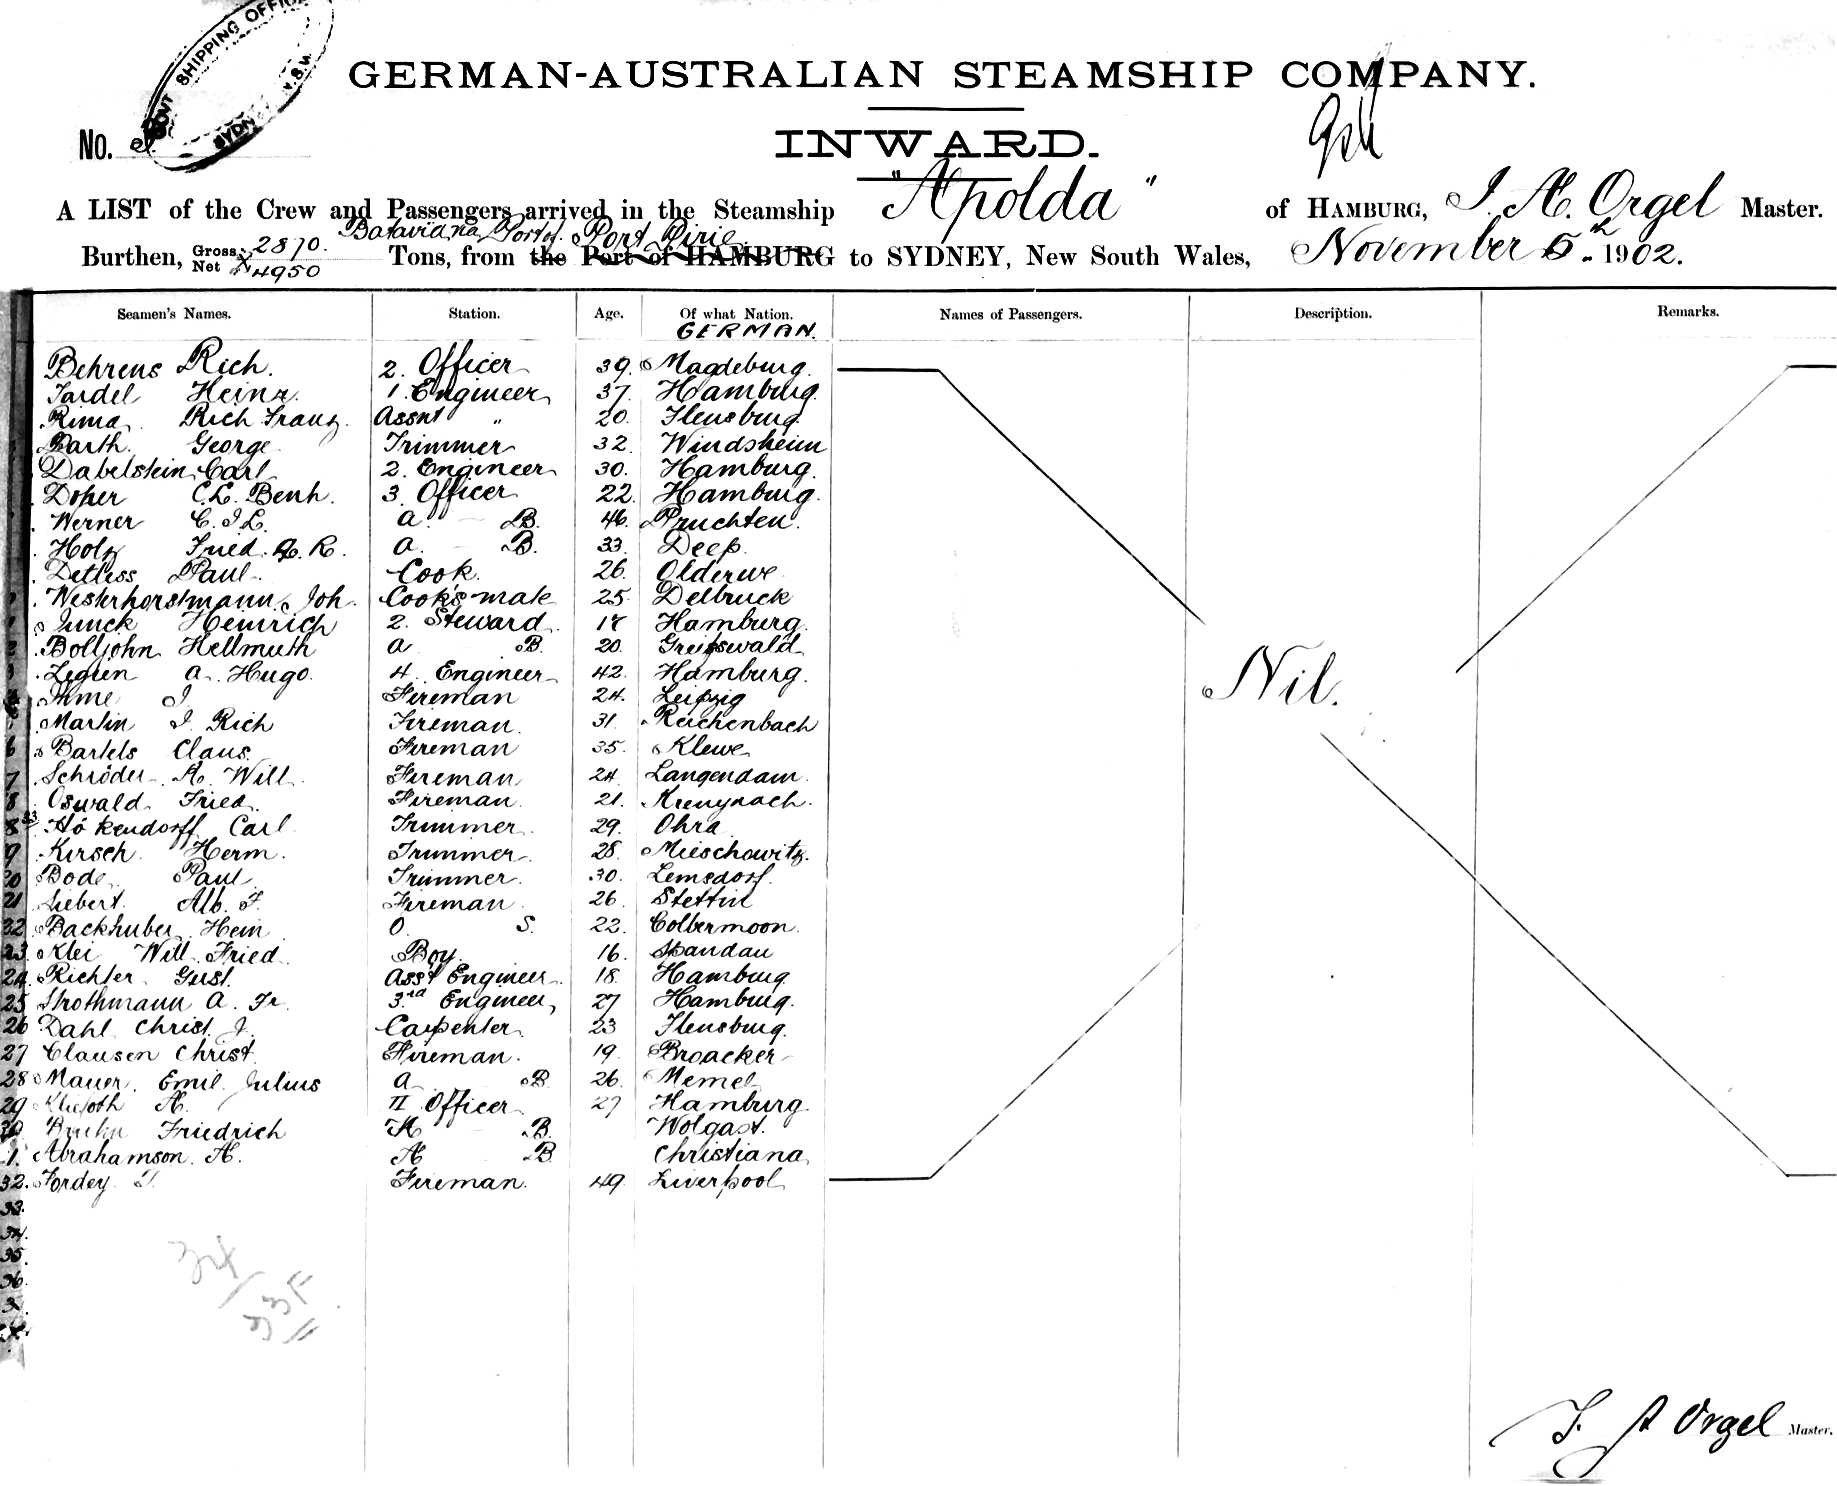 SHIPPING OFFICE
SYDNEY N.S.W.
GERMAN-AUSTRALIAN STEAMSHIP COMPANY.
No.
INWARD.
A LIST of the Crew and Passengers arrived in the Steamship "Apolda" of HAMBURG, J. A. Orgel Master.
Batavia via Port Pirie
Burthen, Gross 2870. Net 4950 Tons, from the Port of HAMBURG to SYDNEY, New South Wales, November 5th 1902.
Seamen's Names. Station. Age. Of what Nation. Names of Passengers. Description. Remarks.
GERMAN.
Behrens Rich. 2. Officer 39. Magdeburg.
Tardel Heinr. 1. Engineer 37. Hamburg.
Rima Rich Franz. Assnt " 20. Flensburg
Barth. George Trimmer 32. Windsheim
Dabelstein Carl 2. Engineer 30. Hamburg.
Doher C. L. Benh. 3. Officer 22. Hamburg.
Werner C. J L. a. B. 46. Pruchten.
Holz Fried. A. R. a. B. 33. Deep.
Detless Paul Cook. 26. Olderwe
Westerhorstmann Joh. Cook's mate 25. Delbruck
Junck Heinrich 2. Steward 17 Hamburg.
Boltjohn Hellmuth a B. 20. Greifswald
Legien a. Hugo. 4. Engineer 42. Hamburg.
Ihme J Fireman 24. Leipzig
Martin J. Rich Fireman. 31. Reichenbach
6 Bartels Claus. Fireman 35. Klewe
7 Schröder A. Will Fireman 24 Langendam.
8 Oswald Fried. Fireman. 21. Kreuznach.
8 Hökendorff Carl Trimmer. 29. Ohra
9 Kirsch. Herm. Trimmer. 28. Mieschowitz.
20 Bode Paul Trimmer. 30. Lemsdorf.
21 Liebert. Alb. F. Fireman. 26. Stettin
22 Backhuber Hein O. S. 22. Colbermoon.
23 Klei Will. Fried. Boy. 16. Spandau
24 Richter Gust. Asst Engineer 18. Hamburg
25 Strothmann A. Fr. 3rd Engineer, 27 Hamburg.
26 Dahl Christ. J. Carpenter 23 Flensburg.
27 Clausen Christ. Fireman. 19. Broacker
28 Mauer. Emil Julius a B. 26. Memel
29 Kliefoth A. II Officer 27 Hamburg
30 Friedrich A B. Wolgast.
1. Abrahamson. A. A B Christiana
32. Fordey J. Fireman. 49. Liverpool
Nil.
33.
34.
35.
36.
34
33F
J. A Orgel Master.